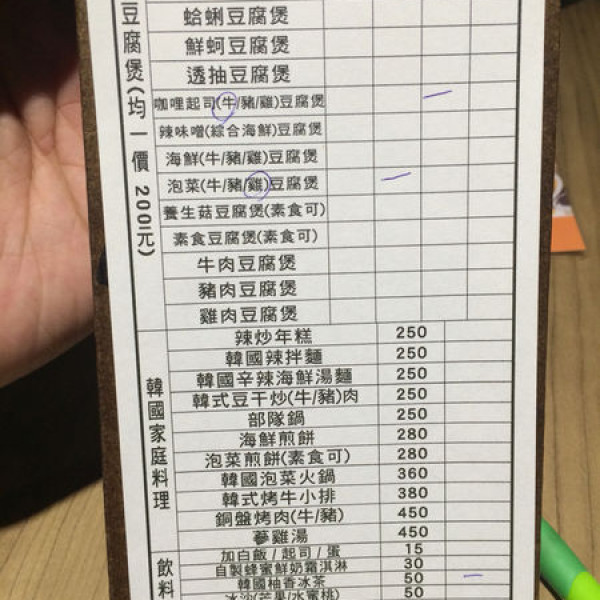 豆腐煲(均一價 200元)
蛤蜊豆腐煲
鮮蚵豆腐煲
透抽豆腐煲
咖哩起司(牛/豬/雞)豆腐煲
辣味噌(綜合海鮮)豆腐煲
海鮮(牛/豬/雞)豆腐煲
泡菜(牛/豬/雞)豆腐煲
養生菇豆腐煲(素食可)
素食豆腐煲(素食可)
牛肉豆腐煲
豬肉豆腐煲
雞肉豆腐煲
韓國家庭料理
辣炒年糕 250
韓國辣拌麵 250
韓國辛辣海鮮湯麵 250
韓式豆干炒(牛/豬)肉 250
部隊鍋 250
海鮮煎餅 280
泡菜煎餅(素食可) 280
韓國泡菜火鍋 360
韓式烤牛小排 380
銅盤烤肉(牛/豬) 450
蔘雞湯 450
飲料
加白飯/起司/蛋 15
自製蜂蜜鮮奶霜淇淋 30
韓國柚香冰茶 50
冰沙(芒果/水蜜桃) 50